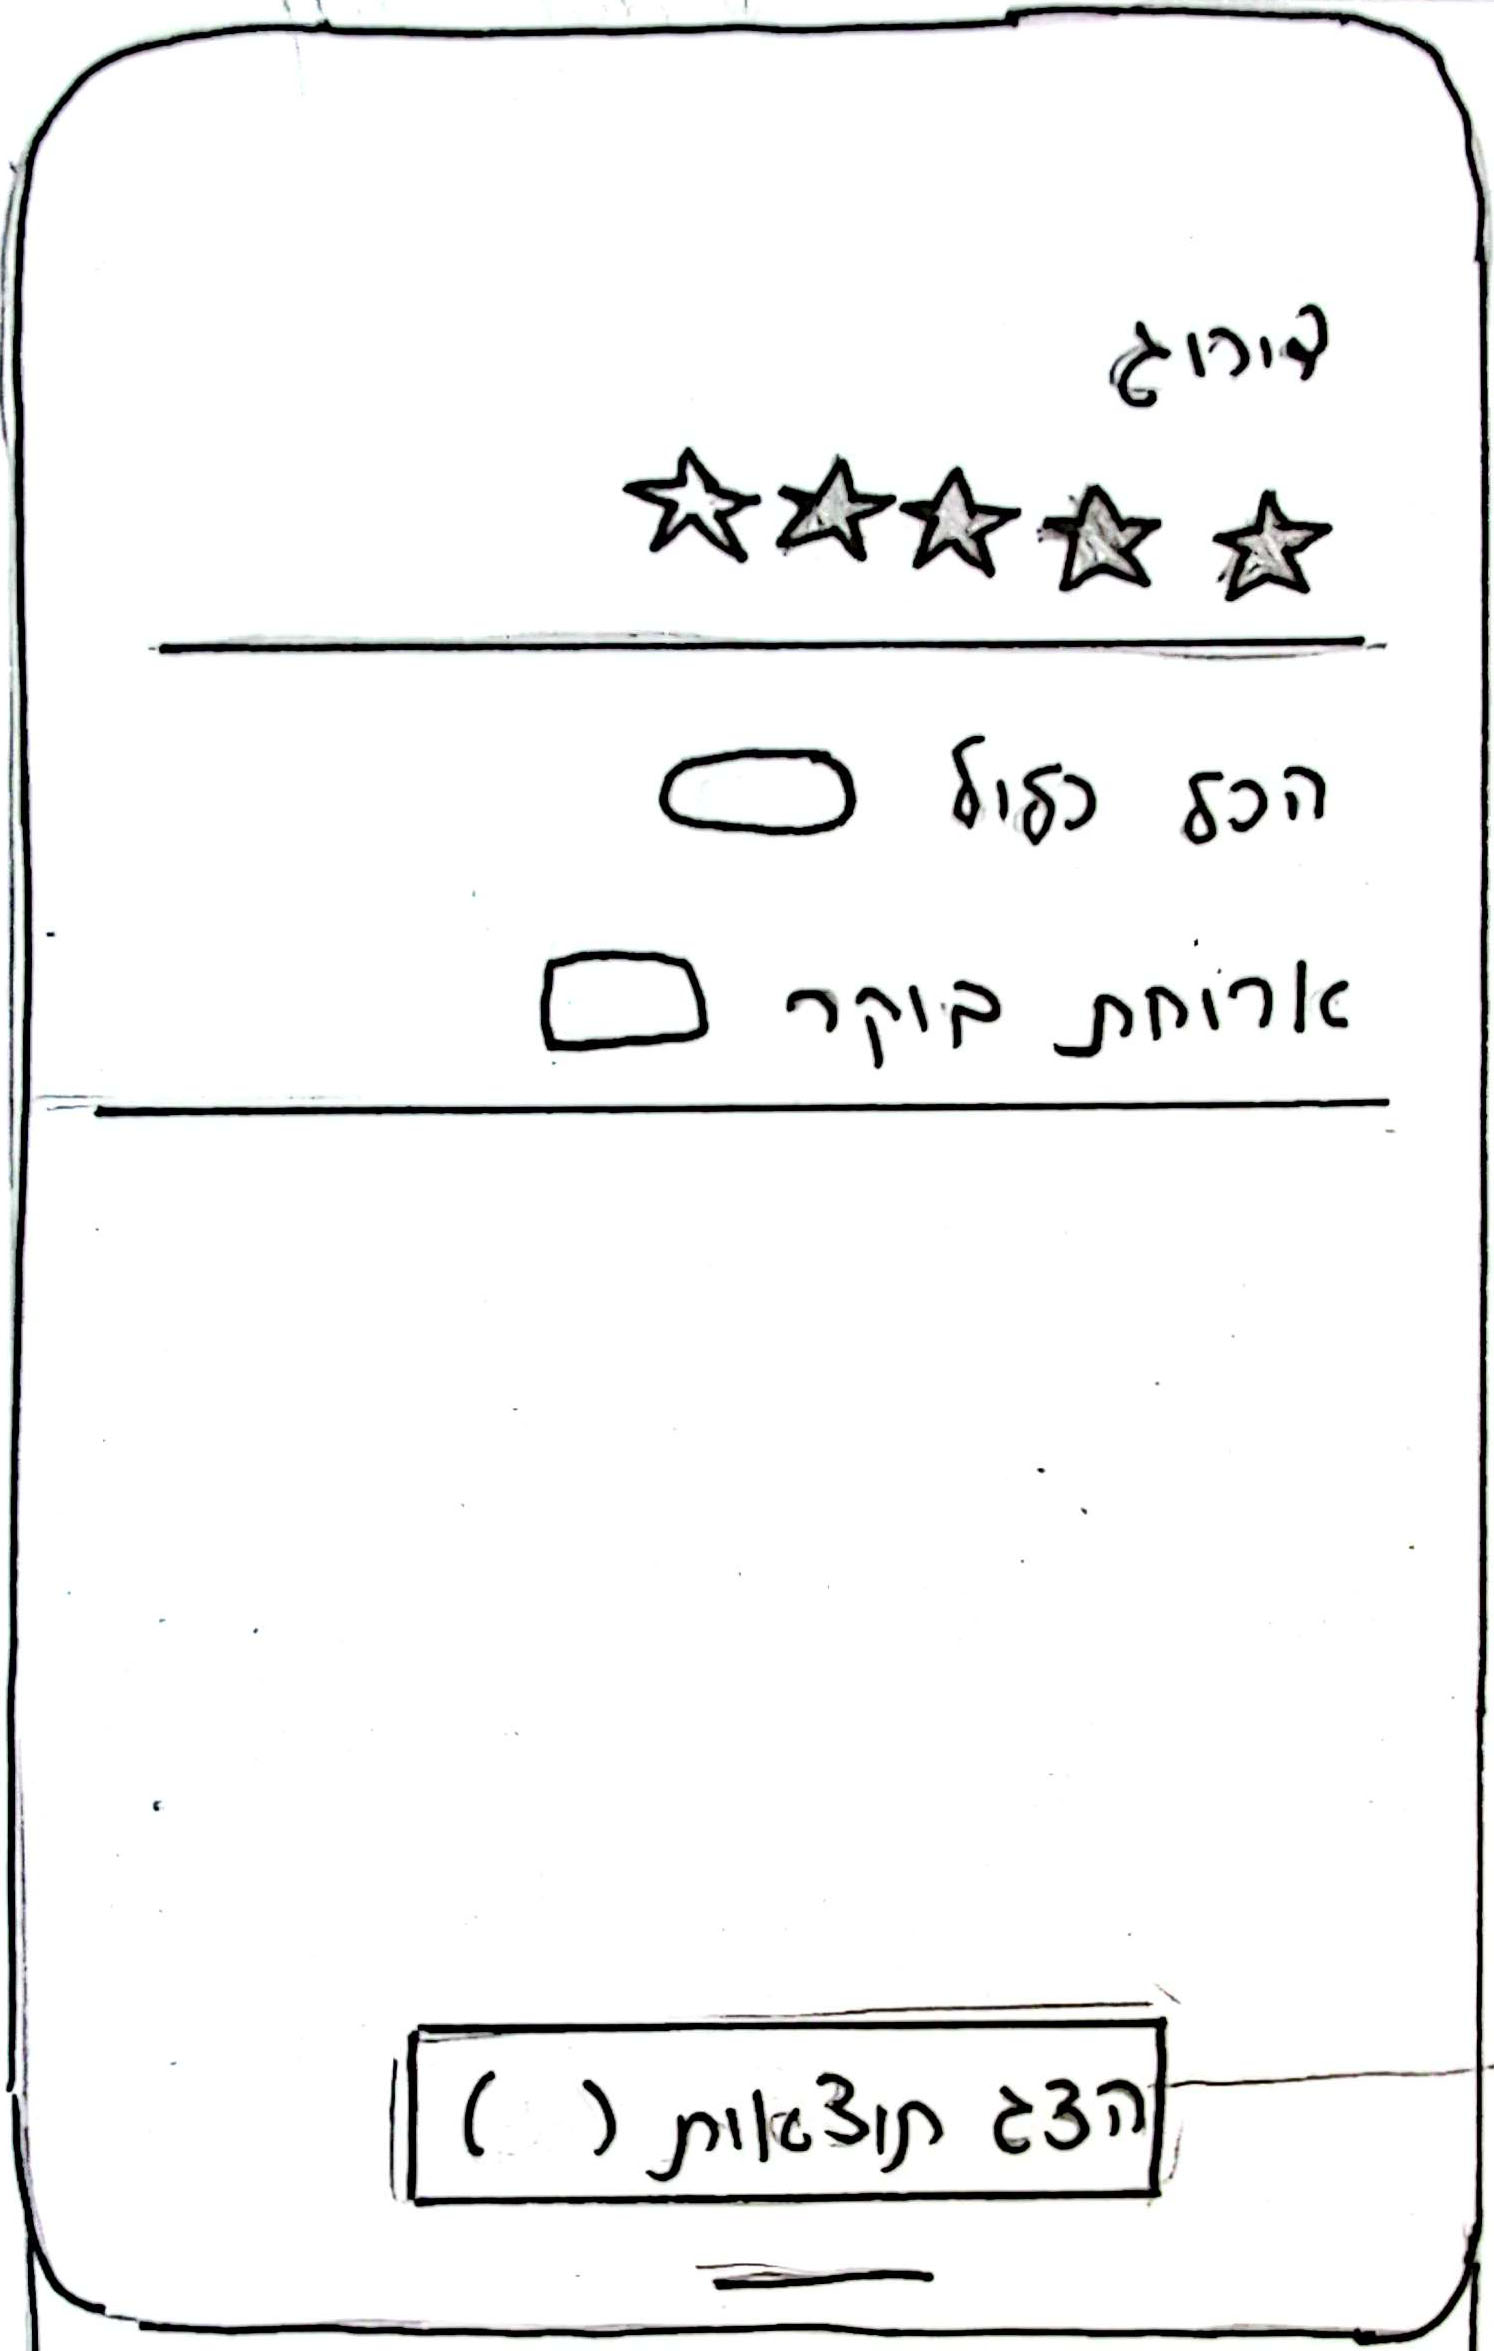 דירוג
הכל כלול
ארוחת בוקר
הצג תוצאות ( )